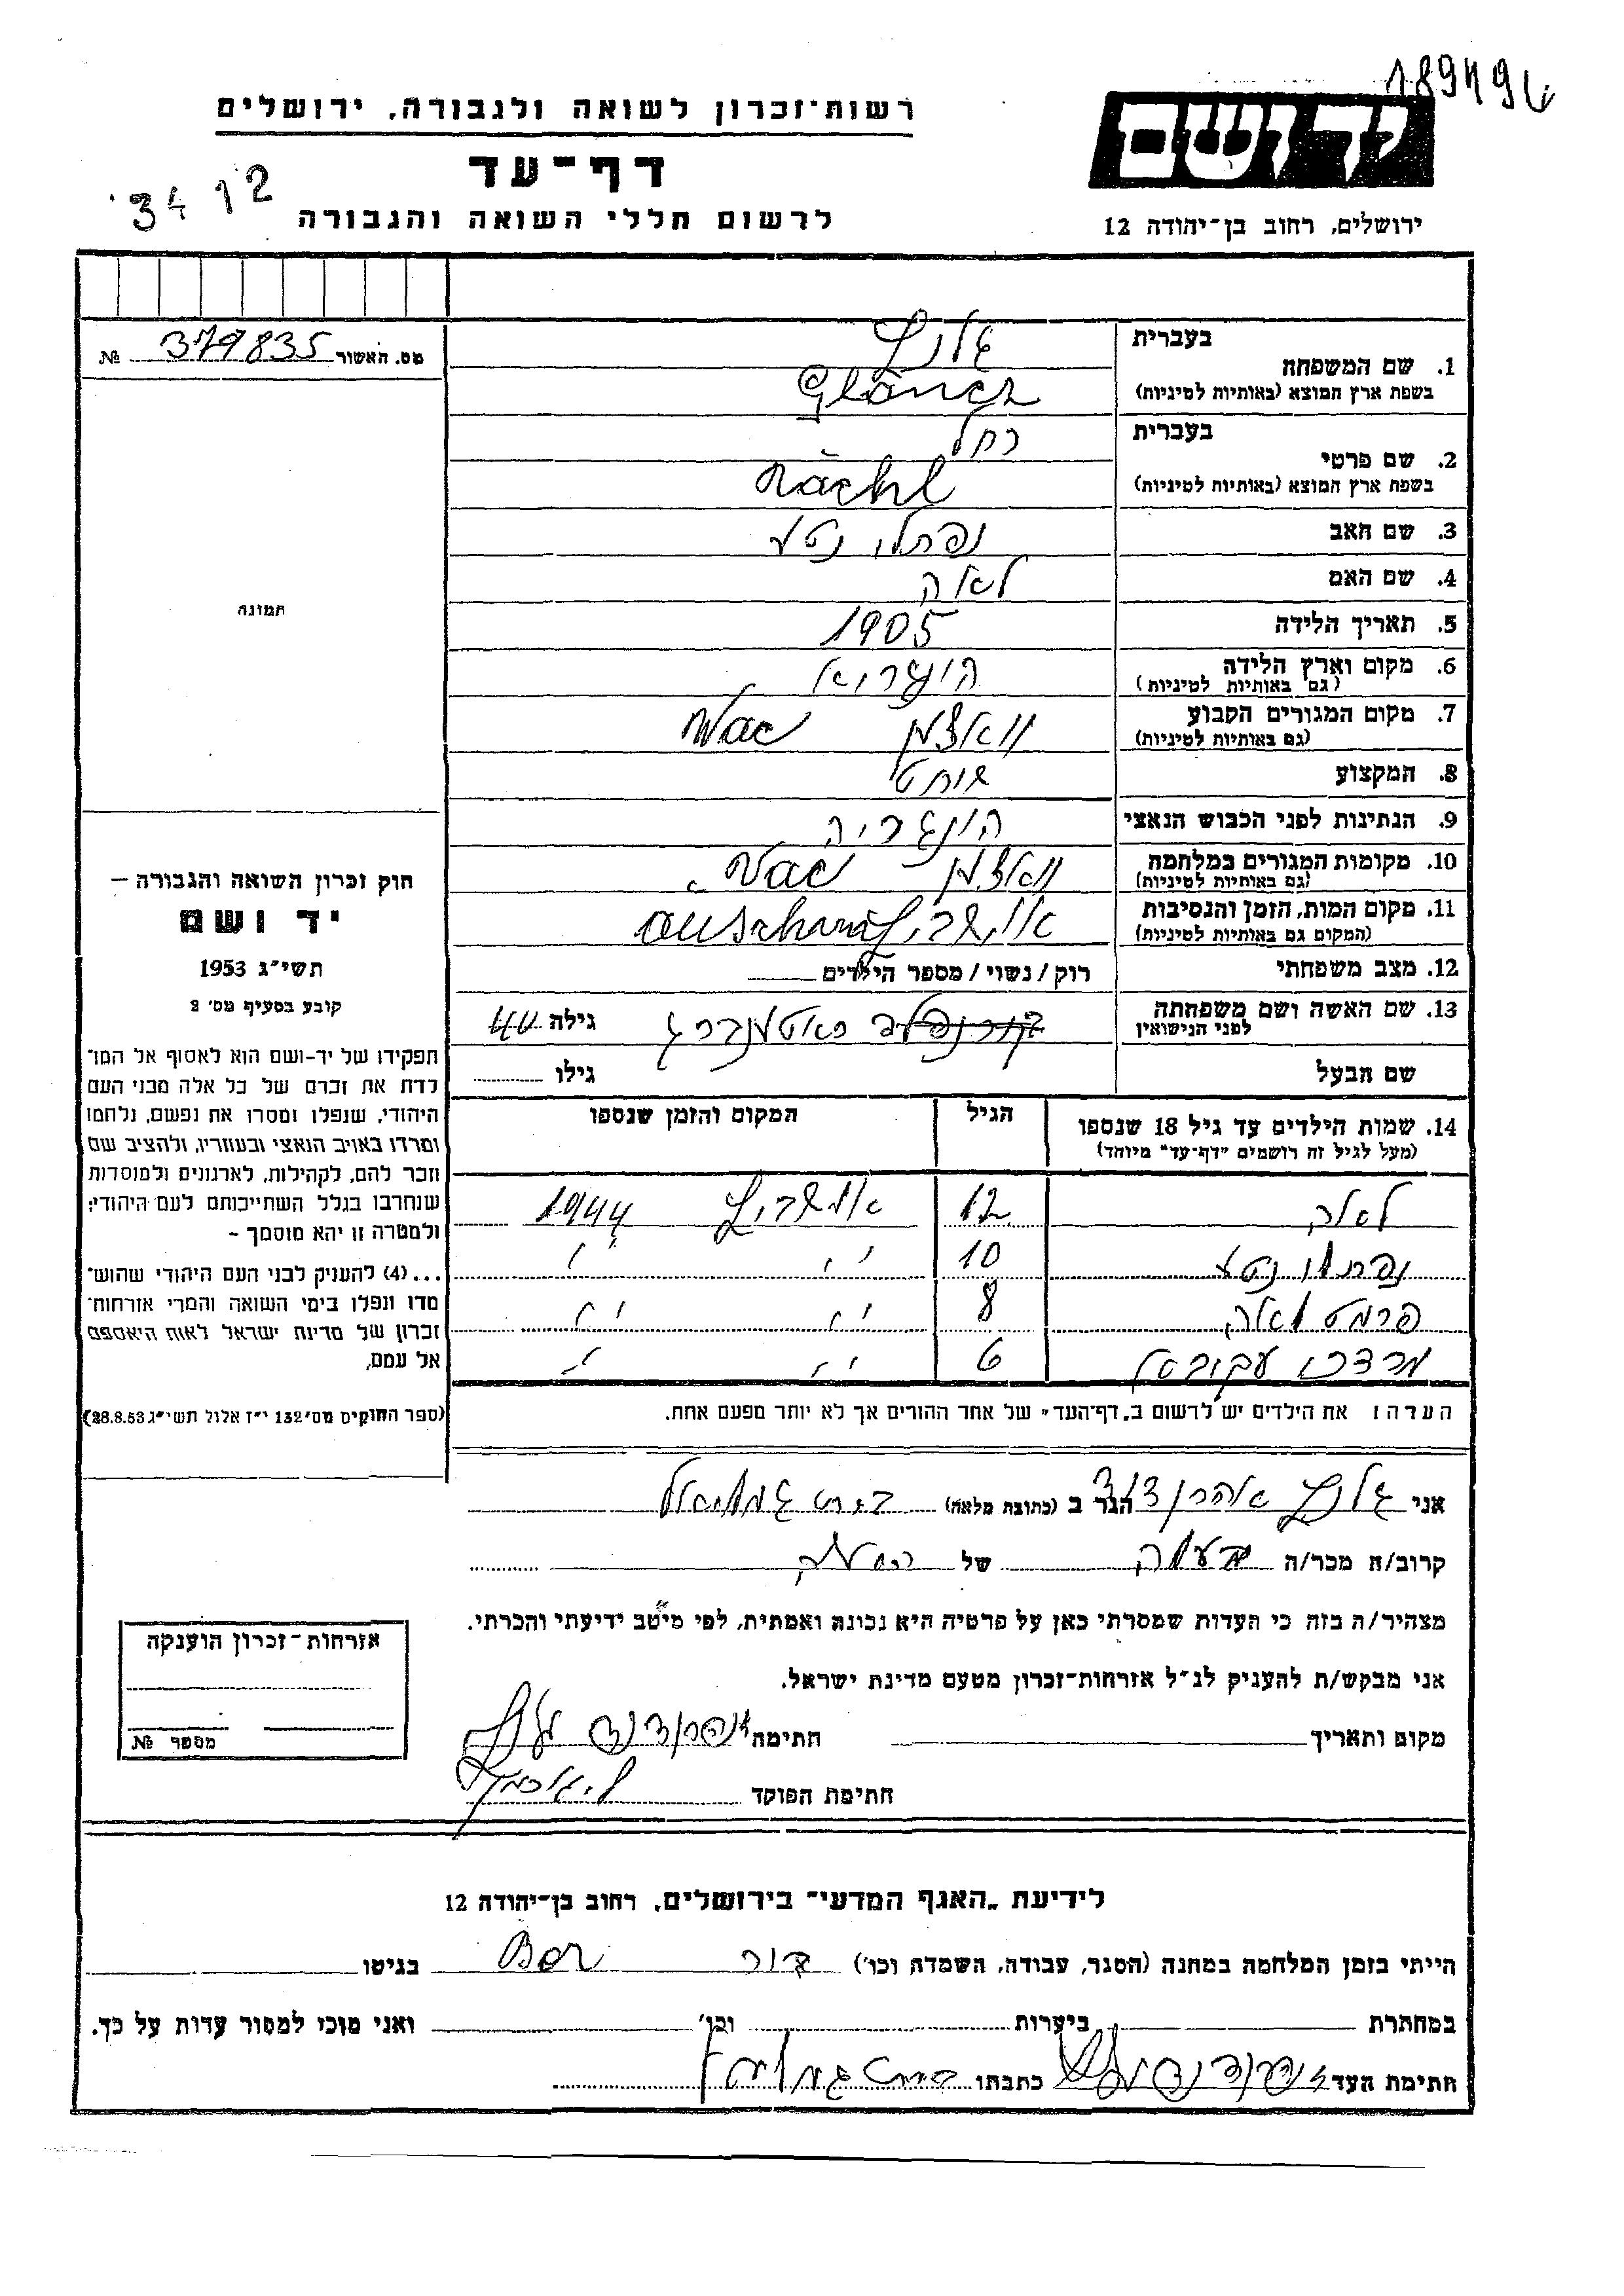 189496
רשות־זכרון לשואה ולגבורה, ירושלים
יד ושם
דף־עד
3412
לרשום חללי השואה והגבורה
ירושלים, רחוב בן־יהודה 12
מס. האשור 379835 №
1. שם המשפחה
בעברית גלנץ
בשפת ארץ המוצא (באותיות לטיניות) Gláncz
2. שם פרטי
בעברית רחל
בשפת ארץ המוצא (באותיות לטיניות) Ráchl
3. שם האב נפתלי נטע
4. שם האם לאה
5. תאריך הלידה 1905
6. מקום וארץ הלידה
(גם באותיות לטיניות)
7. מקום המגורים הקבוע וואצן Vac
(גם באותיות לטיניות)
8. המקצוע
9. הנתינות לפני הכבוש הנאצי הונגריה
10. מקומות המגורים במלחמה וואצן Vac
(גם באותיות לטיניות)
11. מקום המות, הזמן והנסיבות
(המקום גם באותיות לטיניות)
12. מצב משפחתי רוק / נשוי / מספר הילדים
13. שם האשה ושם משפחתה ראטנברג גילה 40
לפני הנישואין
שם הבעל גילו
תמונה
חוק זכרון השואה והגבורה –
יד ושם
תשי״ג 1953
קובע בסעיף מס׳ 2
תפקידו של יד-ושם הוא לאסוף אל המו־
לדת את זכרם של כל אלה מבני העם
היהודי, שנפלו ומסרו את נפשם, נלחמו
ומרדו באויב הנאצי ובעוזריו, ולהציב שם
וזכר להם, לקהילות, לארגונים ולמוסדות
שנחרבו בגלל השתייכותם לעם היהודי;
ולמטרה זו יהא מוסמך –
...(4) להעניק לבני העם היהודי שהוש־
מדו ונפלו בימי השואה והמרי אזרחות־
זכרון של מדינת ישראל לאות היאספם
אל עמם.
(ספר החוקים מס׳ 132 י״ז אלול תשי״ג 28.8.53)
14. שמות הילדים עד גיל 18 שנספו הגיל המקום והזמן שנספו
(מעל לגיל זה רושמים ״דף-עד״ מיוחד)
לאה 12 1944
נפתלי נטע 10 ״ ״
8 ״ ״
מרדכי 6 ״ ״
הערה: את הילדים יש לרשום ב„דף־העד״ של אחד ההורים אך לא יותר מפעם אחת.
אני גלנץ אהרן דוד הגר ב (כתובת מלאה) בית גמליאל
קרוב/ה מכר/ה של
מצהיר/ה בזה כי העדות שמסרתי כאן על פרטיה היא נכונה ואמתית, לפי מיטב ידיעתי והכרתי.
אני מבקש/ת להעניק לנ״ל אזרחות־זכרון מטעם מדינת ישראל.
מקום ותאריך חתימה
חתימת הפוקד
אזרחות־זכרון הוענקה
מספר №
לידיעת „האגף המדעי״ בירושלים, רחוב בן־יהודה 12
הייתי בזמן המלחמה במחנה (הסגר, עבודה, השמדה וכו׳) בור Bor בגיטו
במחתרת ביערות וכו׳ ואני מוכן למסור עדות על כך.
חתימת העד כתבתו בית גמליאל